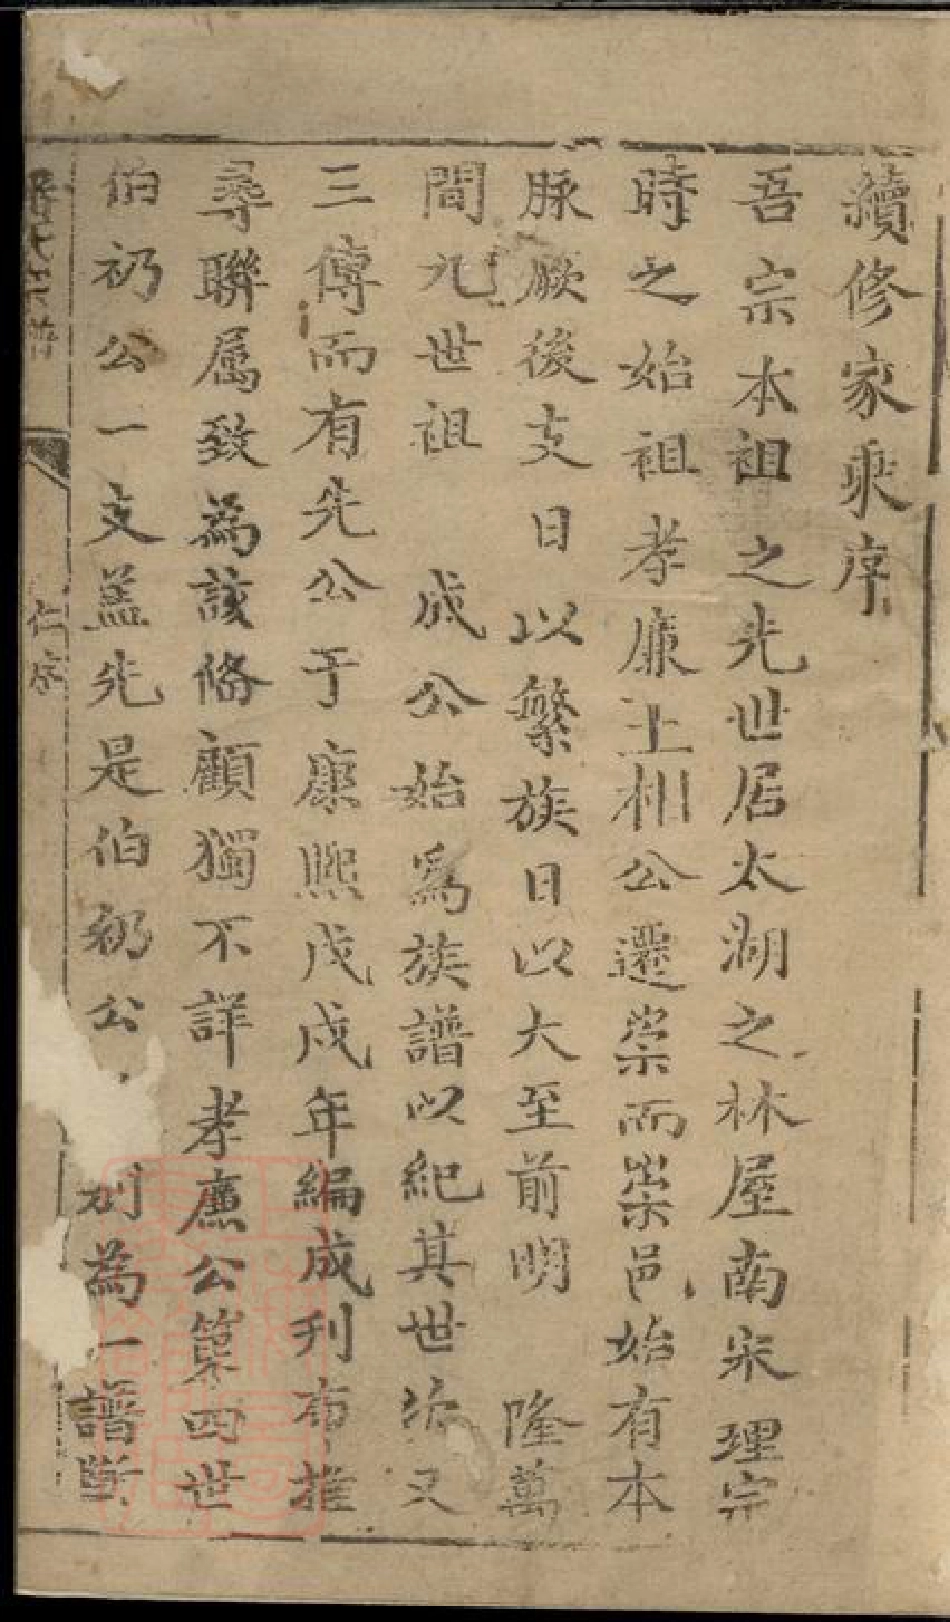 續修家乘序
吾宗本祖之先世居太湖之林屋南宋理宗
時之始祖孝廉王州公遷崇而崇邑始有本
脉厥後支日以繁族日以大至前明隆萬
間九世祖成公始爲族譜以紀其世派又
三傳而有先公于康熙戊戌年編成刋布推
尋聯屬致為該俻顧獨不詳孝廉公第四世
伯礽公一支盖先是伯礽公 別為一譜斷
仁序